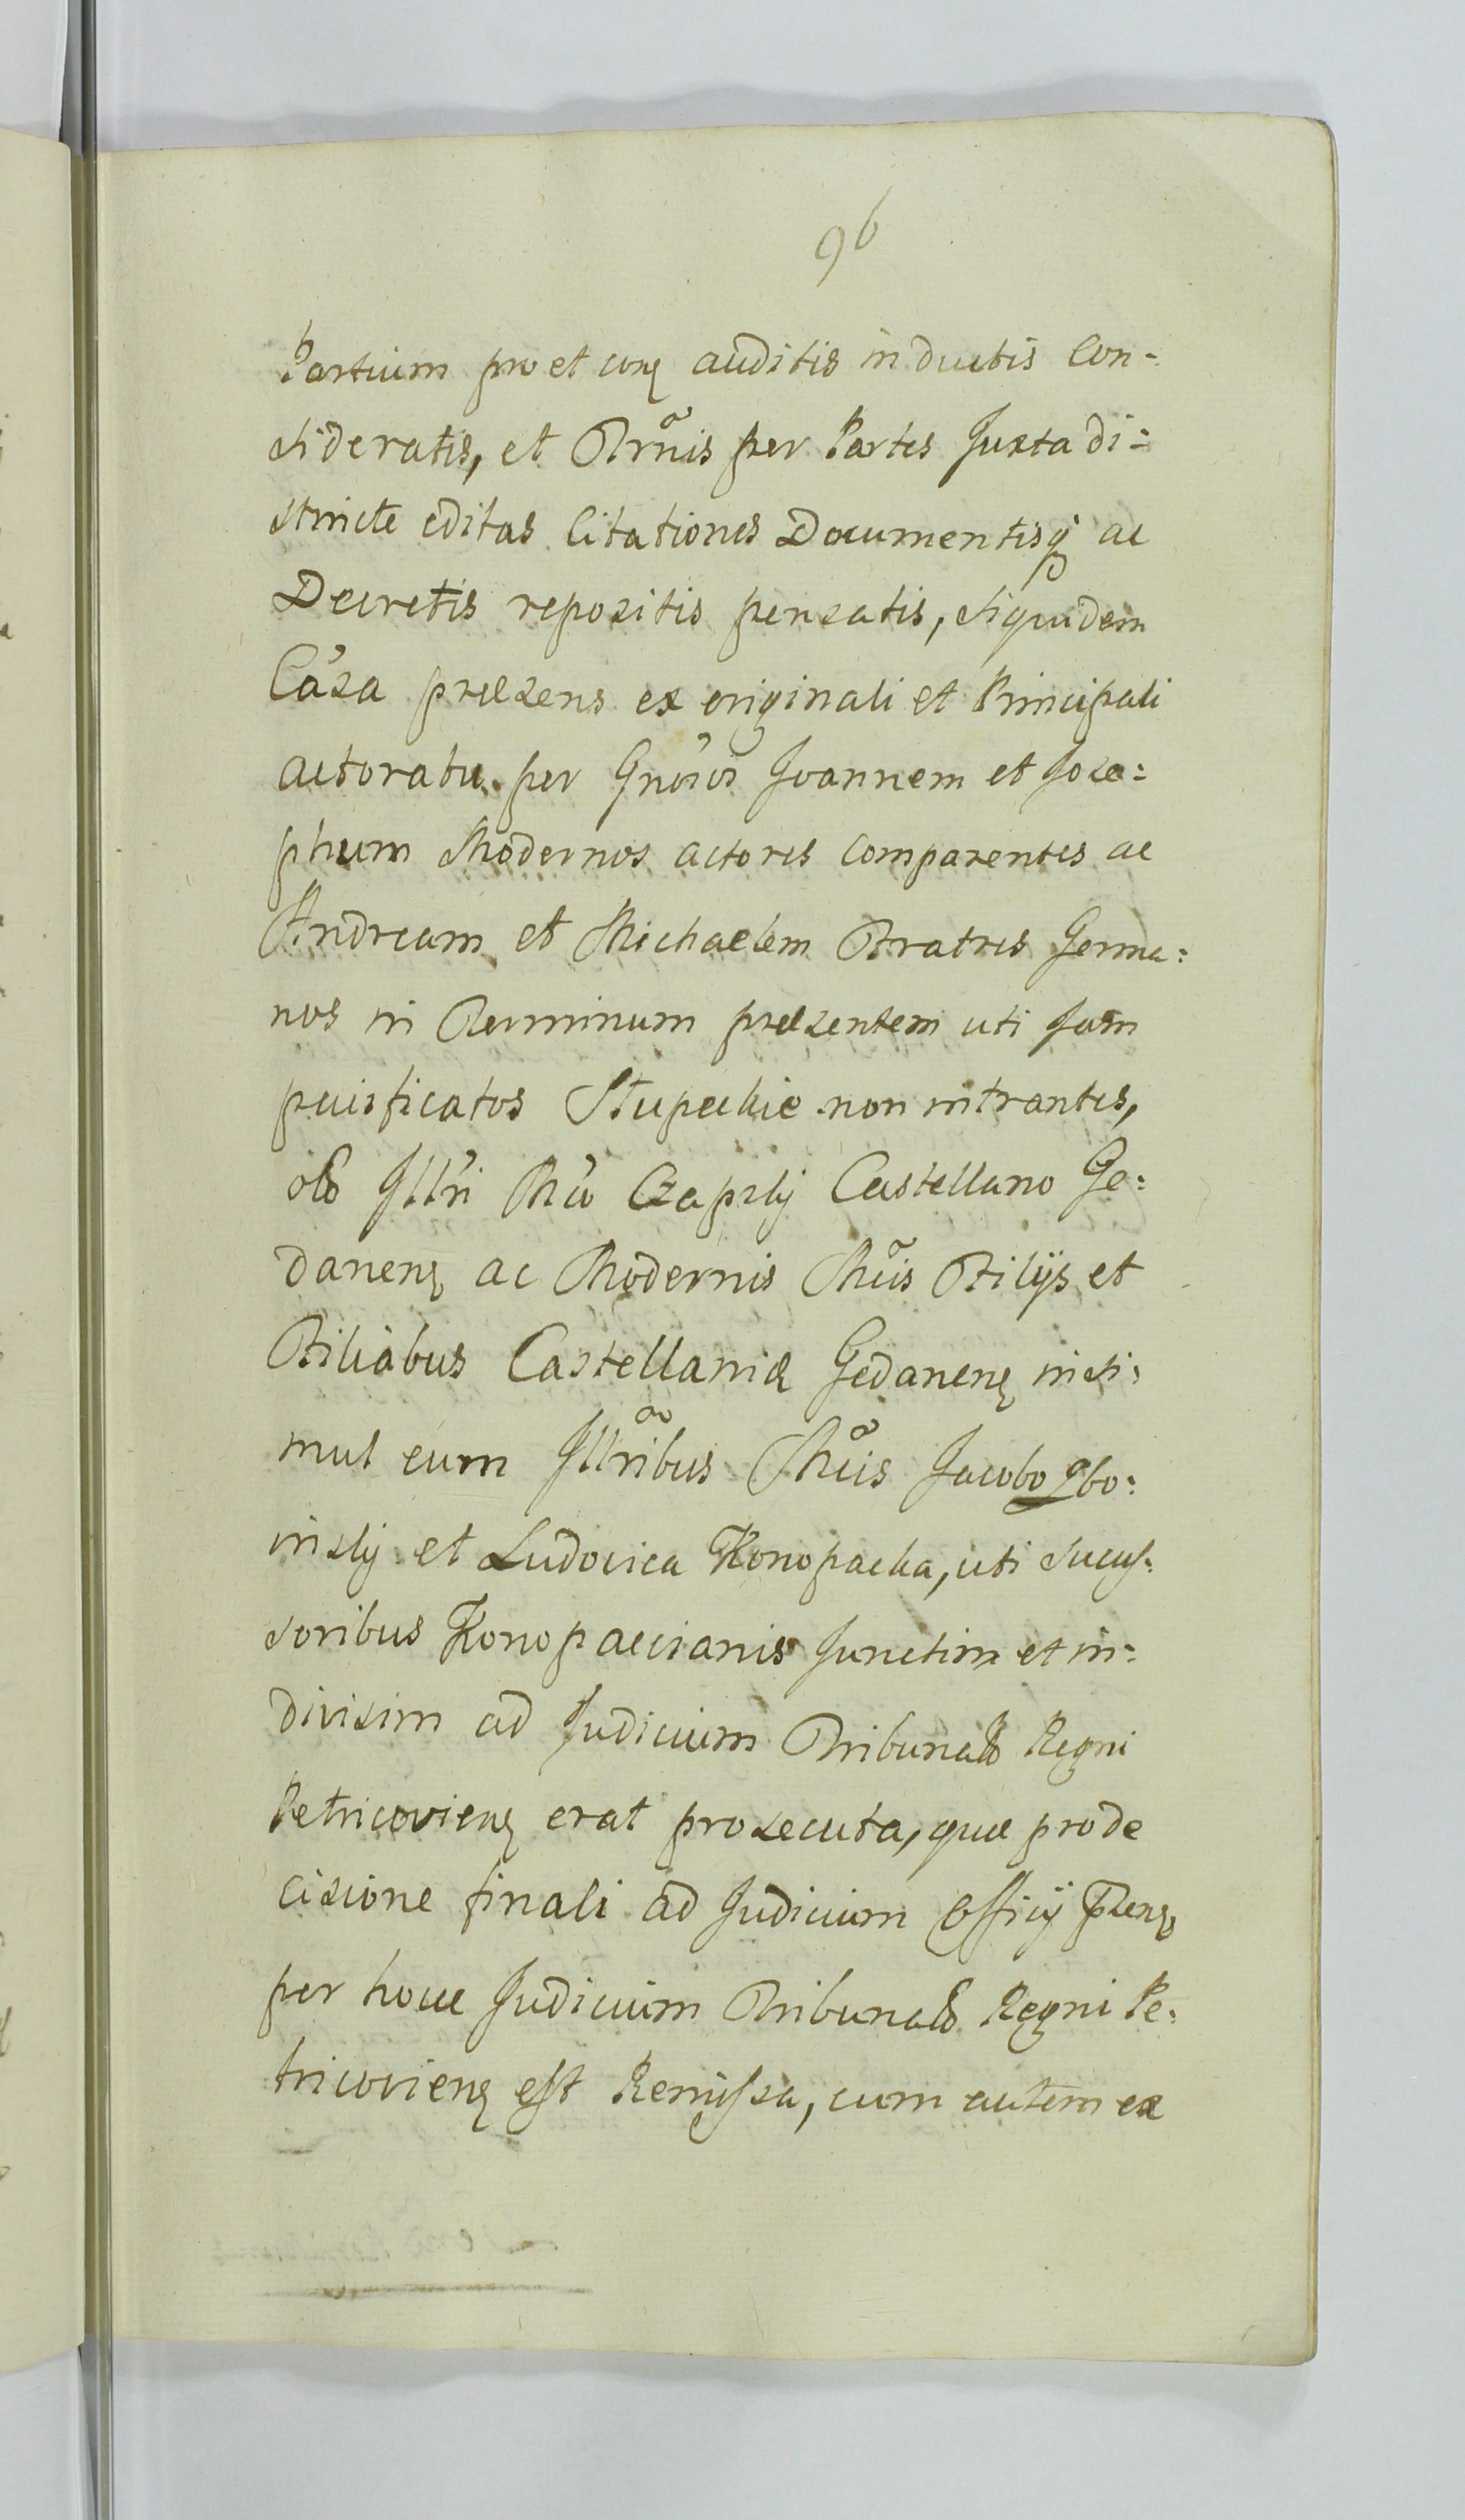 96
Partium pro et con auditis inductis Con-
sideratis, et Trm̃is per Partes Juxta di-
stricte editas Citationes Documentisq̃ ac
Decretis repositis pensatis, siquidem
Cãsa præsens ex originali et Principali
actoratu per Gnõsos Joannem et Jose:
phum Modernos actores Comparentes ac
Andream et Michaelem Fratres Germa:
nos in Terminum præsentem uti jam
pacificatos Słupeckie non intrantes,
olo Illri Mco Czapsky Castellano Ge:
danen ac Modernis Mcis Filijs et
Filiabus Castellaniæ Gedanen insi:
mul cum Illribus Mcis Jacobo Zbo:
insky et Ludovica Konopacka, uti succes:
soribus Konopaccianis Junctim et in:
divisim ad Judicium Tribunalo Regni
Petricovien erat prosecuta, quæ pro de
cisione finali ad Judicium Officij Prens
per hocce Judicium Tribunalo Regni Pe:
tricovien est Remissa, cum autem ex